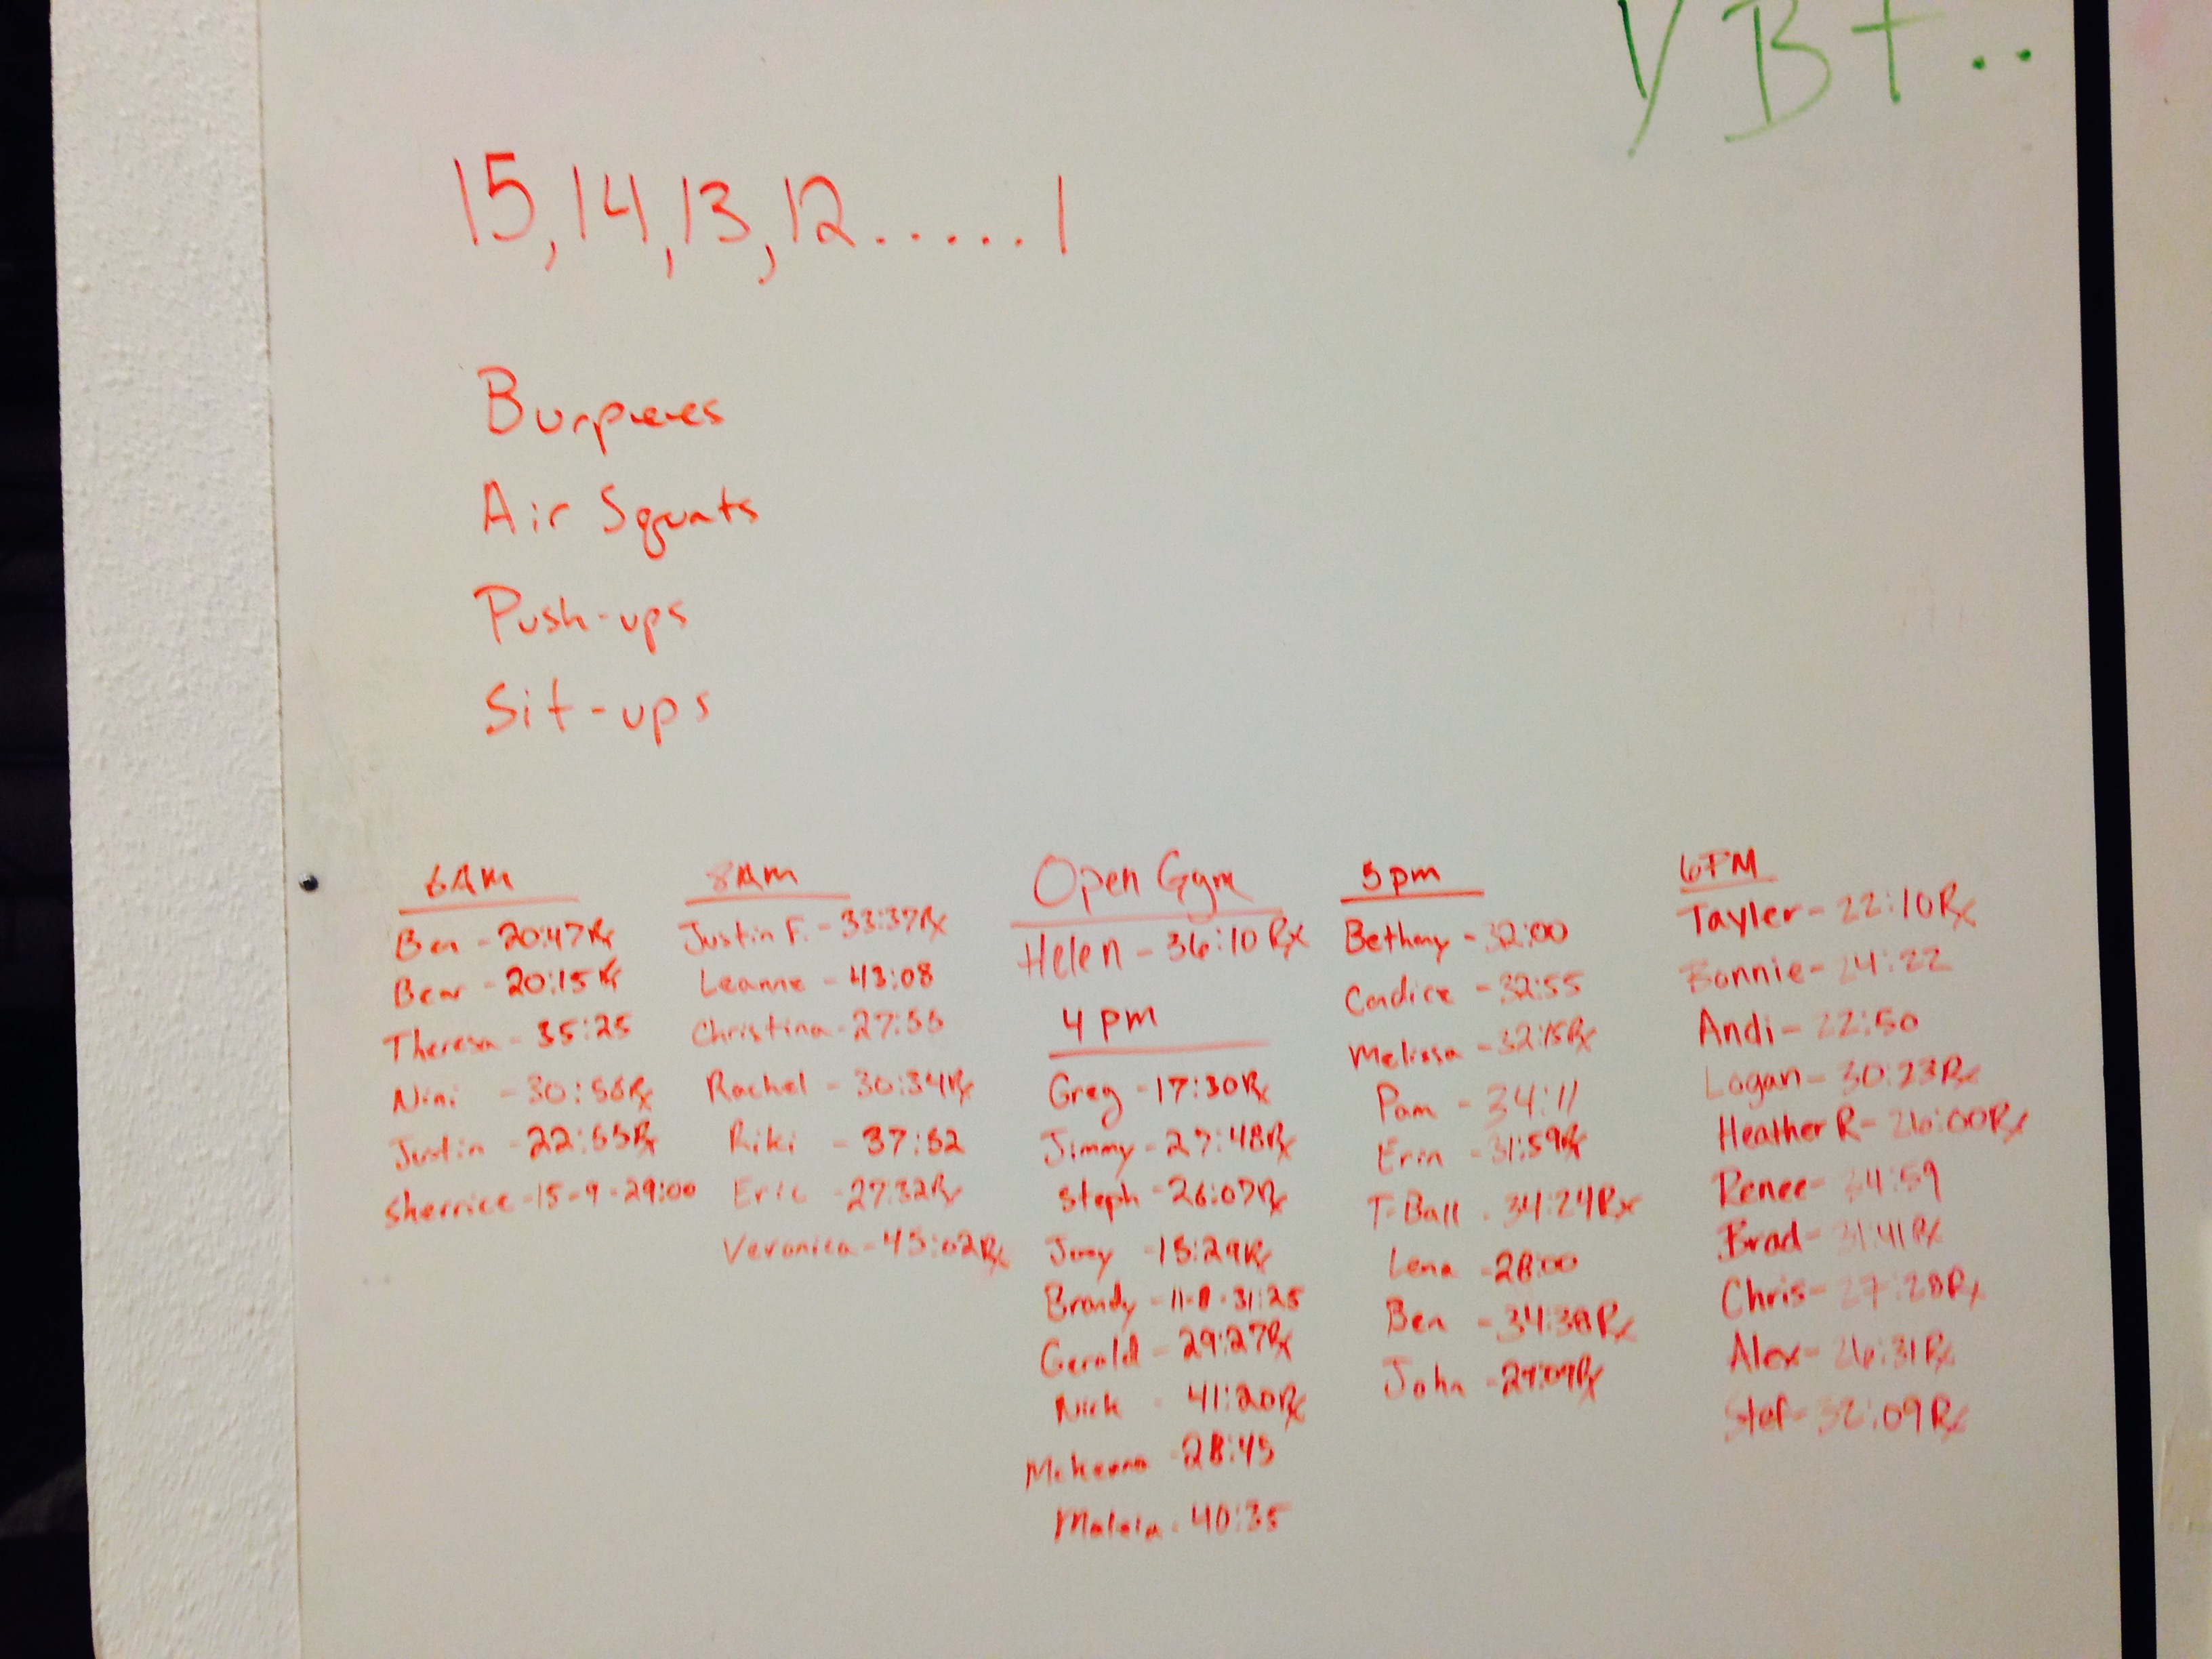 15,14,13,12.....1
Burpees
Air Squats
Push-ups
Sit-ups
6AM
Ben - 20:47Rx
Bear - 20:15Rx
Theresa - 35:25
Nini - 30:56Rx
Justin - 22:55Rx
Sherrice - 15-9 - 29:00
8AM
Justin F. - 33:37Rx
Leanne - 43:08
Christina - 27:55
Rachel - 30:34Rx
Riki - 37:52
Eric - 27:32Rx
Veronica - 45:02Rx
Open Gym
Helen - 36:10 Rx
4 pm
Greg - 17:30Rx
Jimmy - 27:48Rx
Steph - 26:07Rx
Joey - 15:29Rx
Brandy - 11-8 - 31:25
Gerald - 29:27Rx
Nick - 41:20Rx
McKenna - 28:45
Malaia - 40:35
5pm
Bethany - 32:00
Candice - 32:55
Melissa - 32:15Rx
Pam - 34:11
Erin - 31:59Rx
T-Ball - 34:24Rx
Lena - 28:00
Ben - 34:38Rx
John - Rx
6PM
Tayler - 22:10Rx
Bonnie - 24:22
Andi - 22:50
Logan - 30:23Rx
Heather R - 26:00Rx
Renee - 34:59
Brad - 31:41Rx
Chris - 27:28Rx
Alex - 26:31Rx
Stef - 32:09Rx